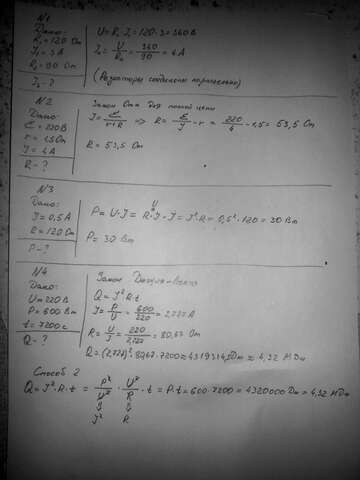 N1
Дано:
R₁=120 Ом
J₁=3 А
R₂=90 Ом
J₂-?
U=R₁·J₁=120·3=360В
J₂=U/R₂=360/90=4А
(Резисторы соединены параллельно)
N2
Дано:
Ɛ=220В
r=1,5Ом
J=4А
R-?
Закон Ома для полной цепи
J=Ɛ/(r+R) => R=Ɛ/J-r=220/4-1,5=53,5 Ом
R=53,5 Ом
N3
Дано:
J=0,5А
R=120 Ом
P-?
U
P=U·J=R·J·J=J²·R=0,5²·120=30 Вт
P=30 Вт
N4
Дано:
U=220В
P=600Вт
t=7200с
Q-?
Закон Джоуля-Ленца
Q=J²·R·t
J=P/U=600/220=2,727А
R=U/J=220/2,727=80,67 Ом
Q=(2,727)²·80,67·7200≈4319314Дж≈4,32 МДж
Способ 2
Q=J²·R·t=P²/U²·U²/P·t=P·t=600·7200=4320000Дж=4,32 МДж
J² R